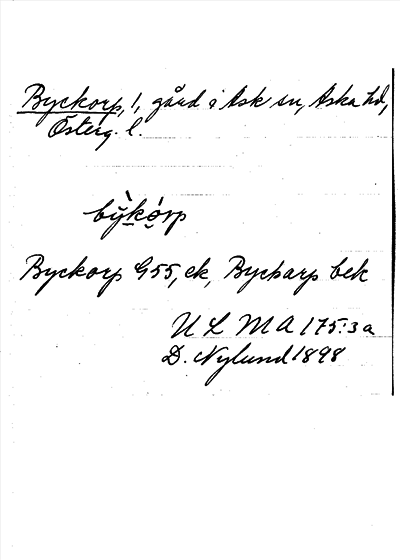 Byckorp, 1, gård i Ask sn, Aska hd,
Österg. l.
bỳkó̤rp
Byckorp G55, ek, Bycharp bek
U L M A 175:3a
D. Nylund 1898